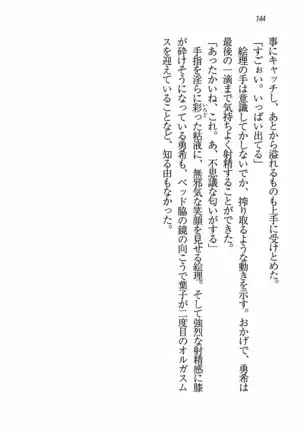 144
事にキャッチし、あとから溢れるものも上手に受けとめた。
「すごぉい。いっぱい出てる」
絵理の手は意識してかしないでか、搾り取るような動きを示す。おかげで、勇希は
最後の一滴まで気持ちよく射精することができた。
「あったかいね、これ。あ、不思議な匂いがする」
手指を淫らに彩った粘液に、無邪気な笑顔を見せる絵理。そして強烈な射精感に膝
が砕けそうになっている勇希も、ベッド脇の鏡の向こうで葉子が二度目のオルガスム
スを迎えていることなど、知る由もなかった。